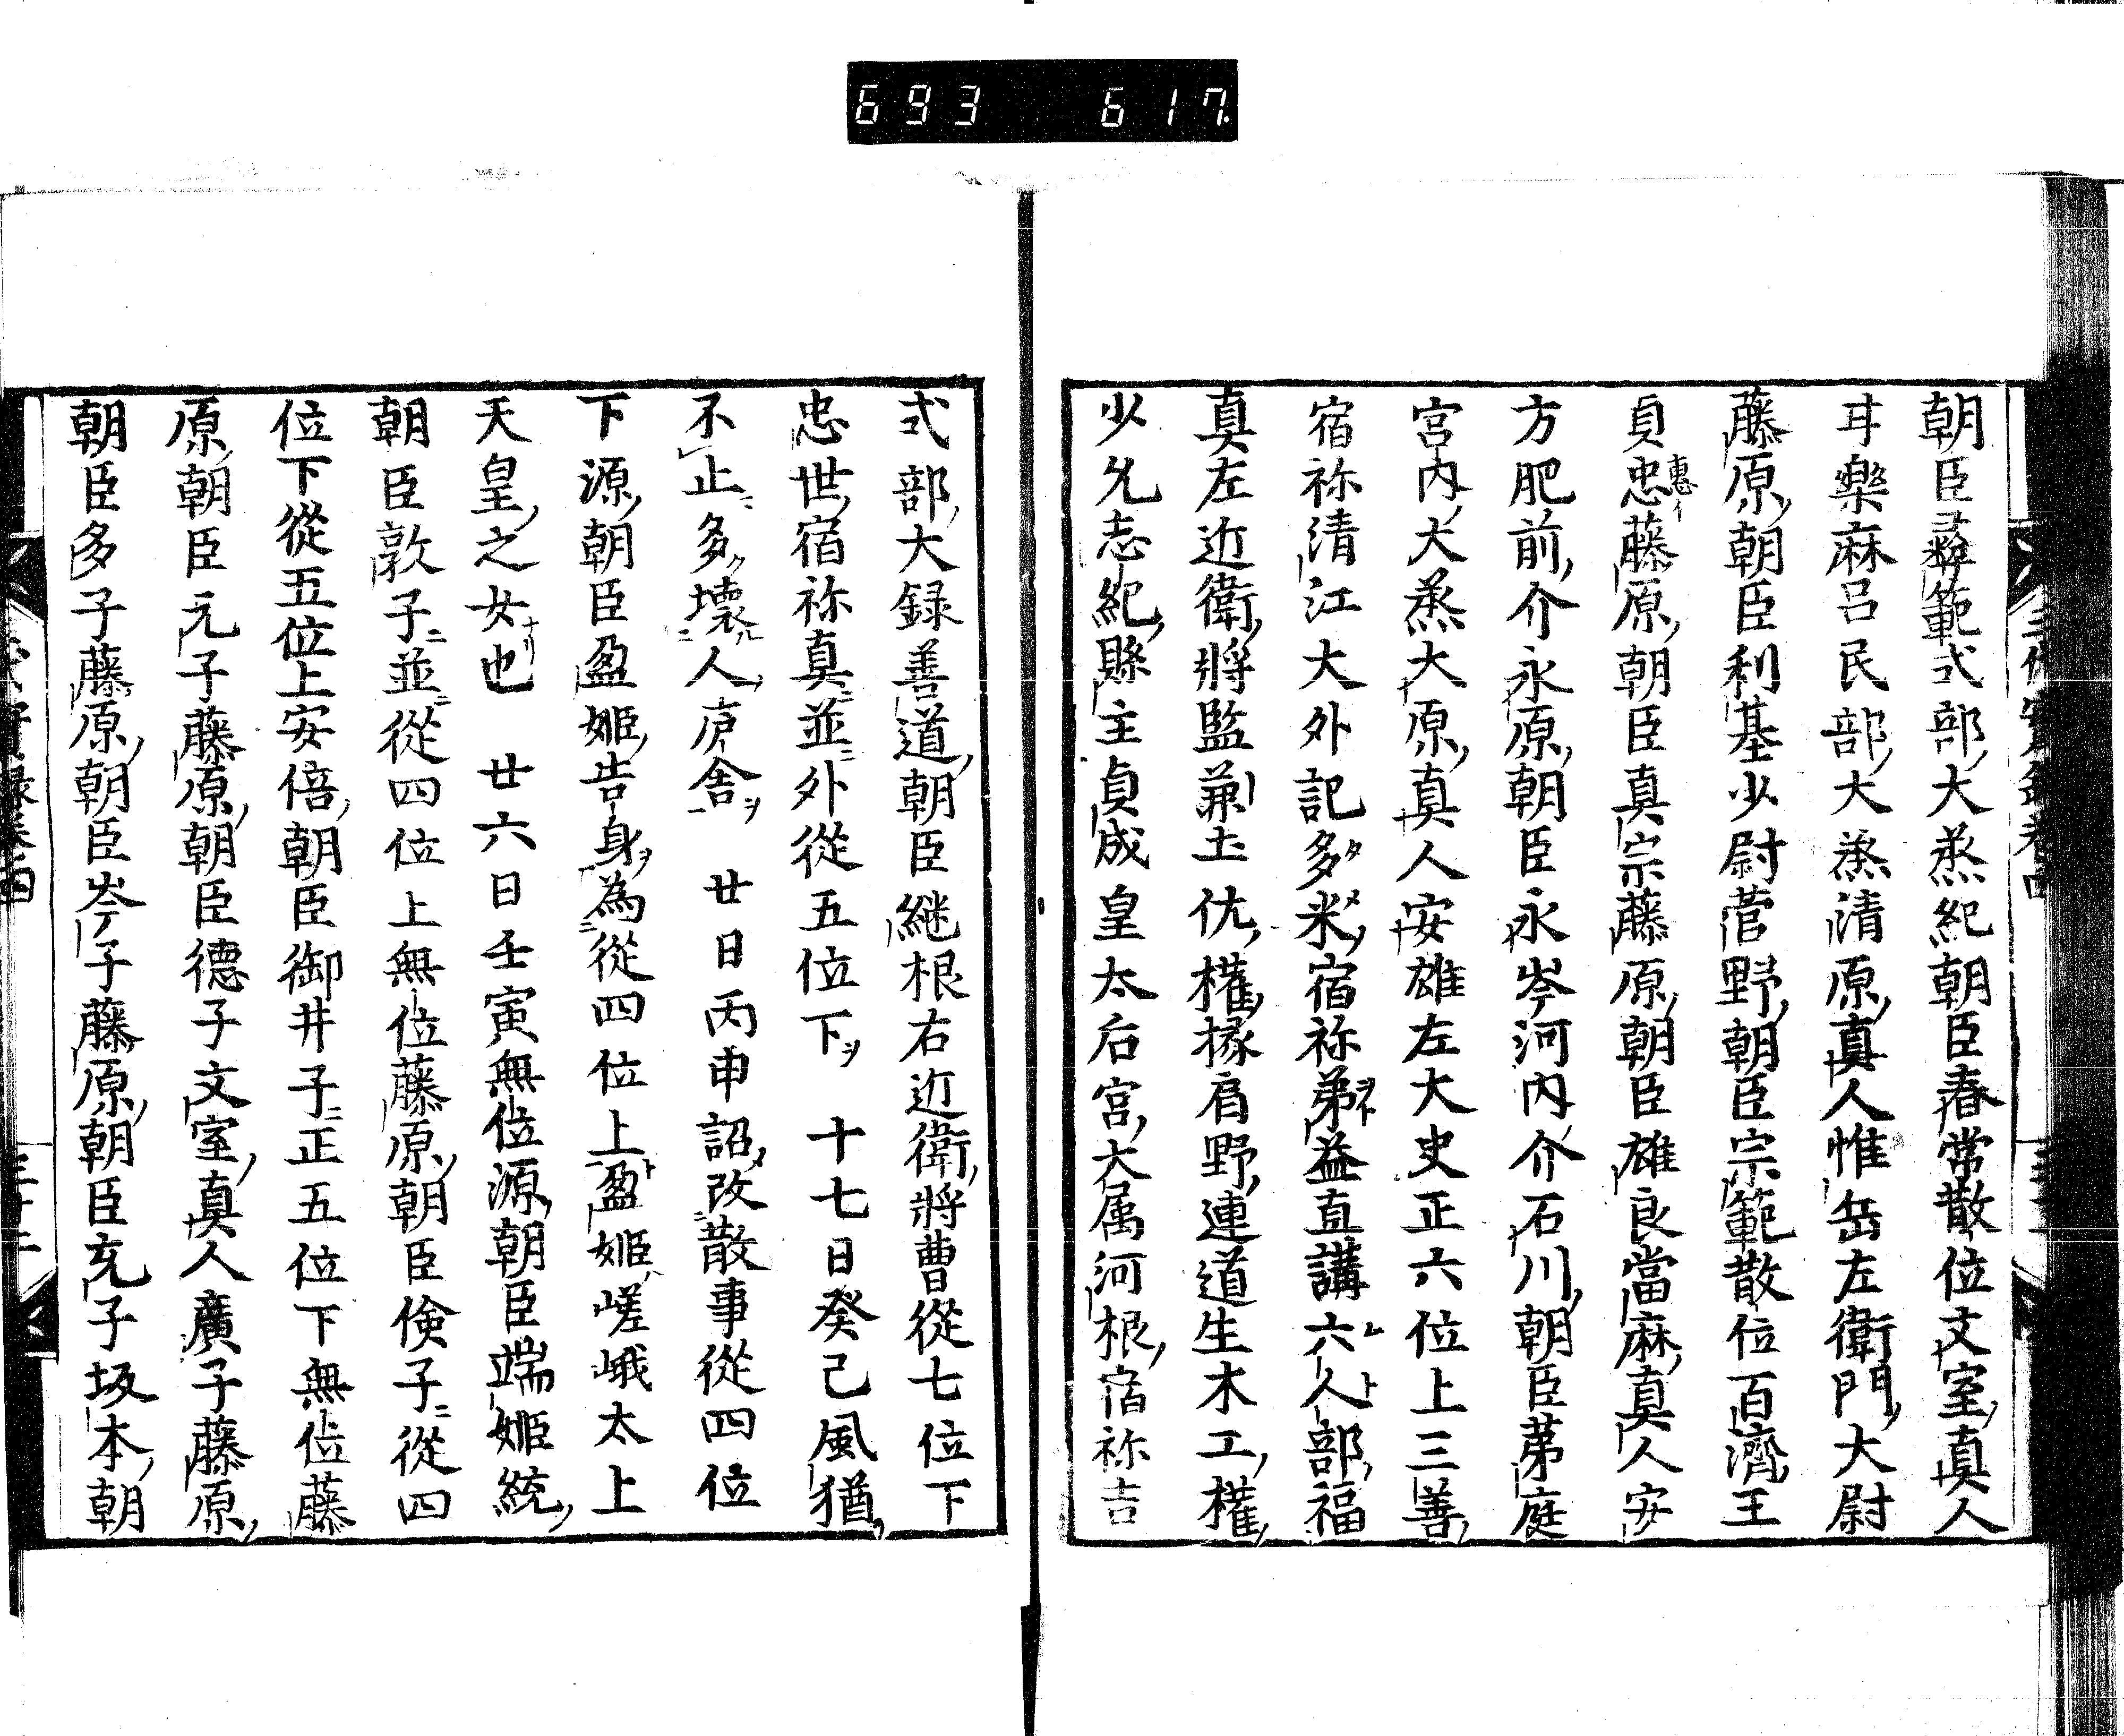 693 617
朝臣彛範式部大烝紀朝臣春常散位文室真人
耳樂麻呂民部大烝清原真人惟岳左衛門大尉
藤原朝臣利基少尉菅野朝臣宗範散位百濟王
貞惠イ忠藤原朝臣真宗藤原朝臣雄良當麻真人安
方肥前介永原朝臣永岑河内介石川朝臣苐庭
宮内大烝大原真人安雄左大史正六位上三善
宿祢清江大外記多米宿祢弟益直講六人部福
真左近衛將監兼土佐權掾肩野連道生木工權
少允志紀縣主貞成皇太后宮大属河根宿祢吉
式部大録善道朝臣継根右近衛將曹從七位下
忠世宿祢真並外從五位下ヲ 十七日癸己風猶
不止多ク壊ル人庐舎ヲ 廿日丙申詔改散事從四位
下源朝臣盈姬告身ヲ為從四位上盈姬嵯峨太上
天皇之女ナリ也 廿六日壬寅無位源朝臣端姬統
朝臣敦子並從四位上無位藤原朝臣儉子從四
位下從五位上安倍朝臣御井子正五位下無位藤
原朝臣元子藤原朝臣德子文室真人廣子藤原
朝臣多子藤原朝臣岑子藤原朝臣充子坂本朝